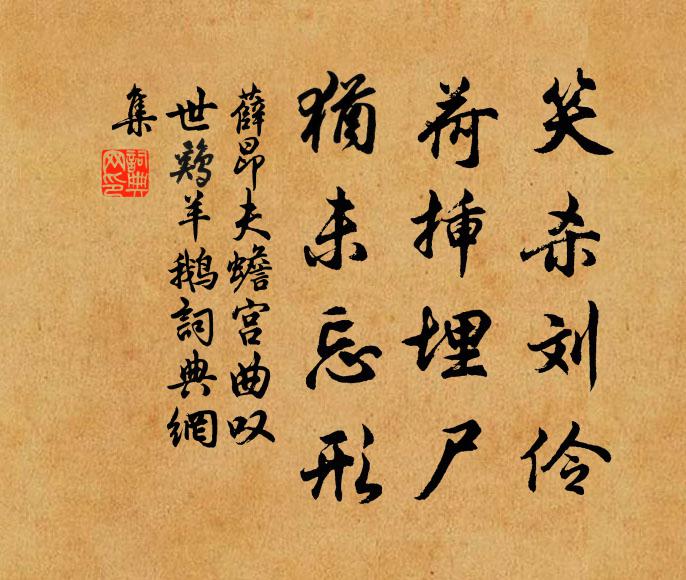 笑杀刘伶
荷插埋尸
犹未忘形
薛昂夫蟾宫曲叹
世鸡羊鹅詞典網
集
詞典网印